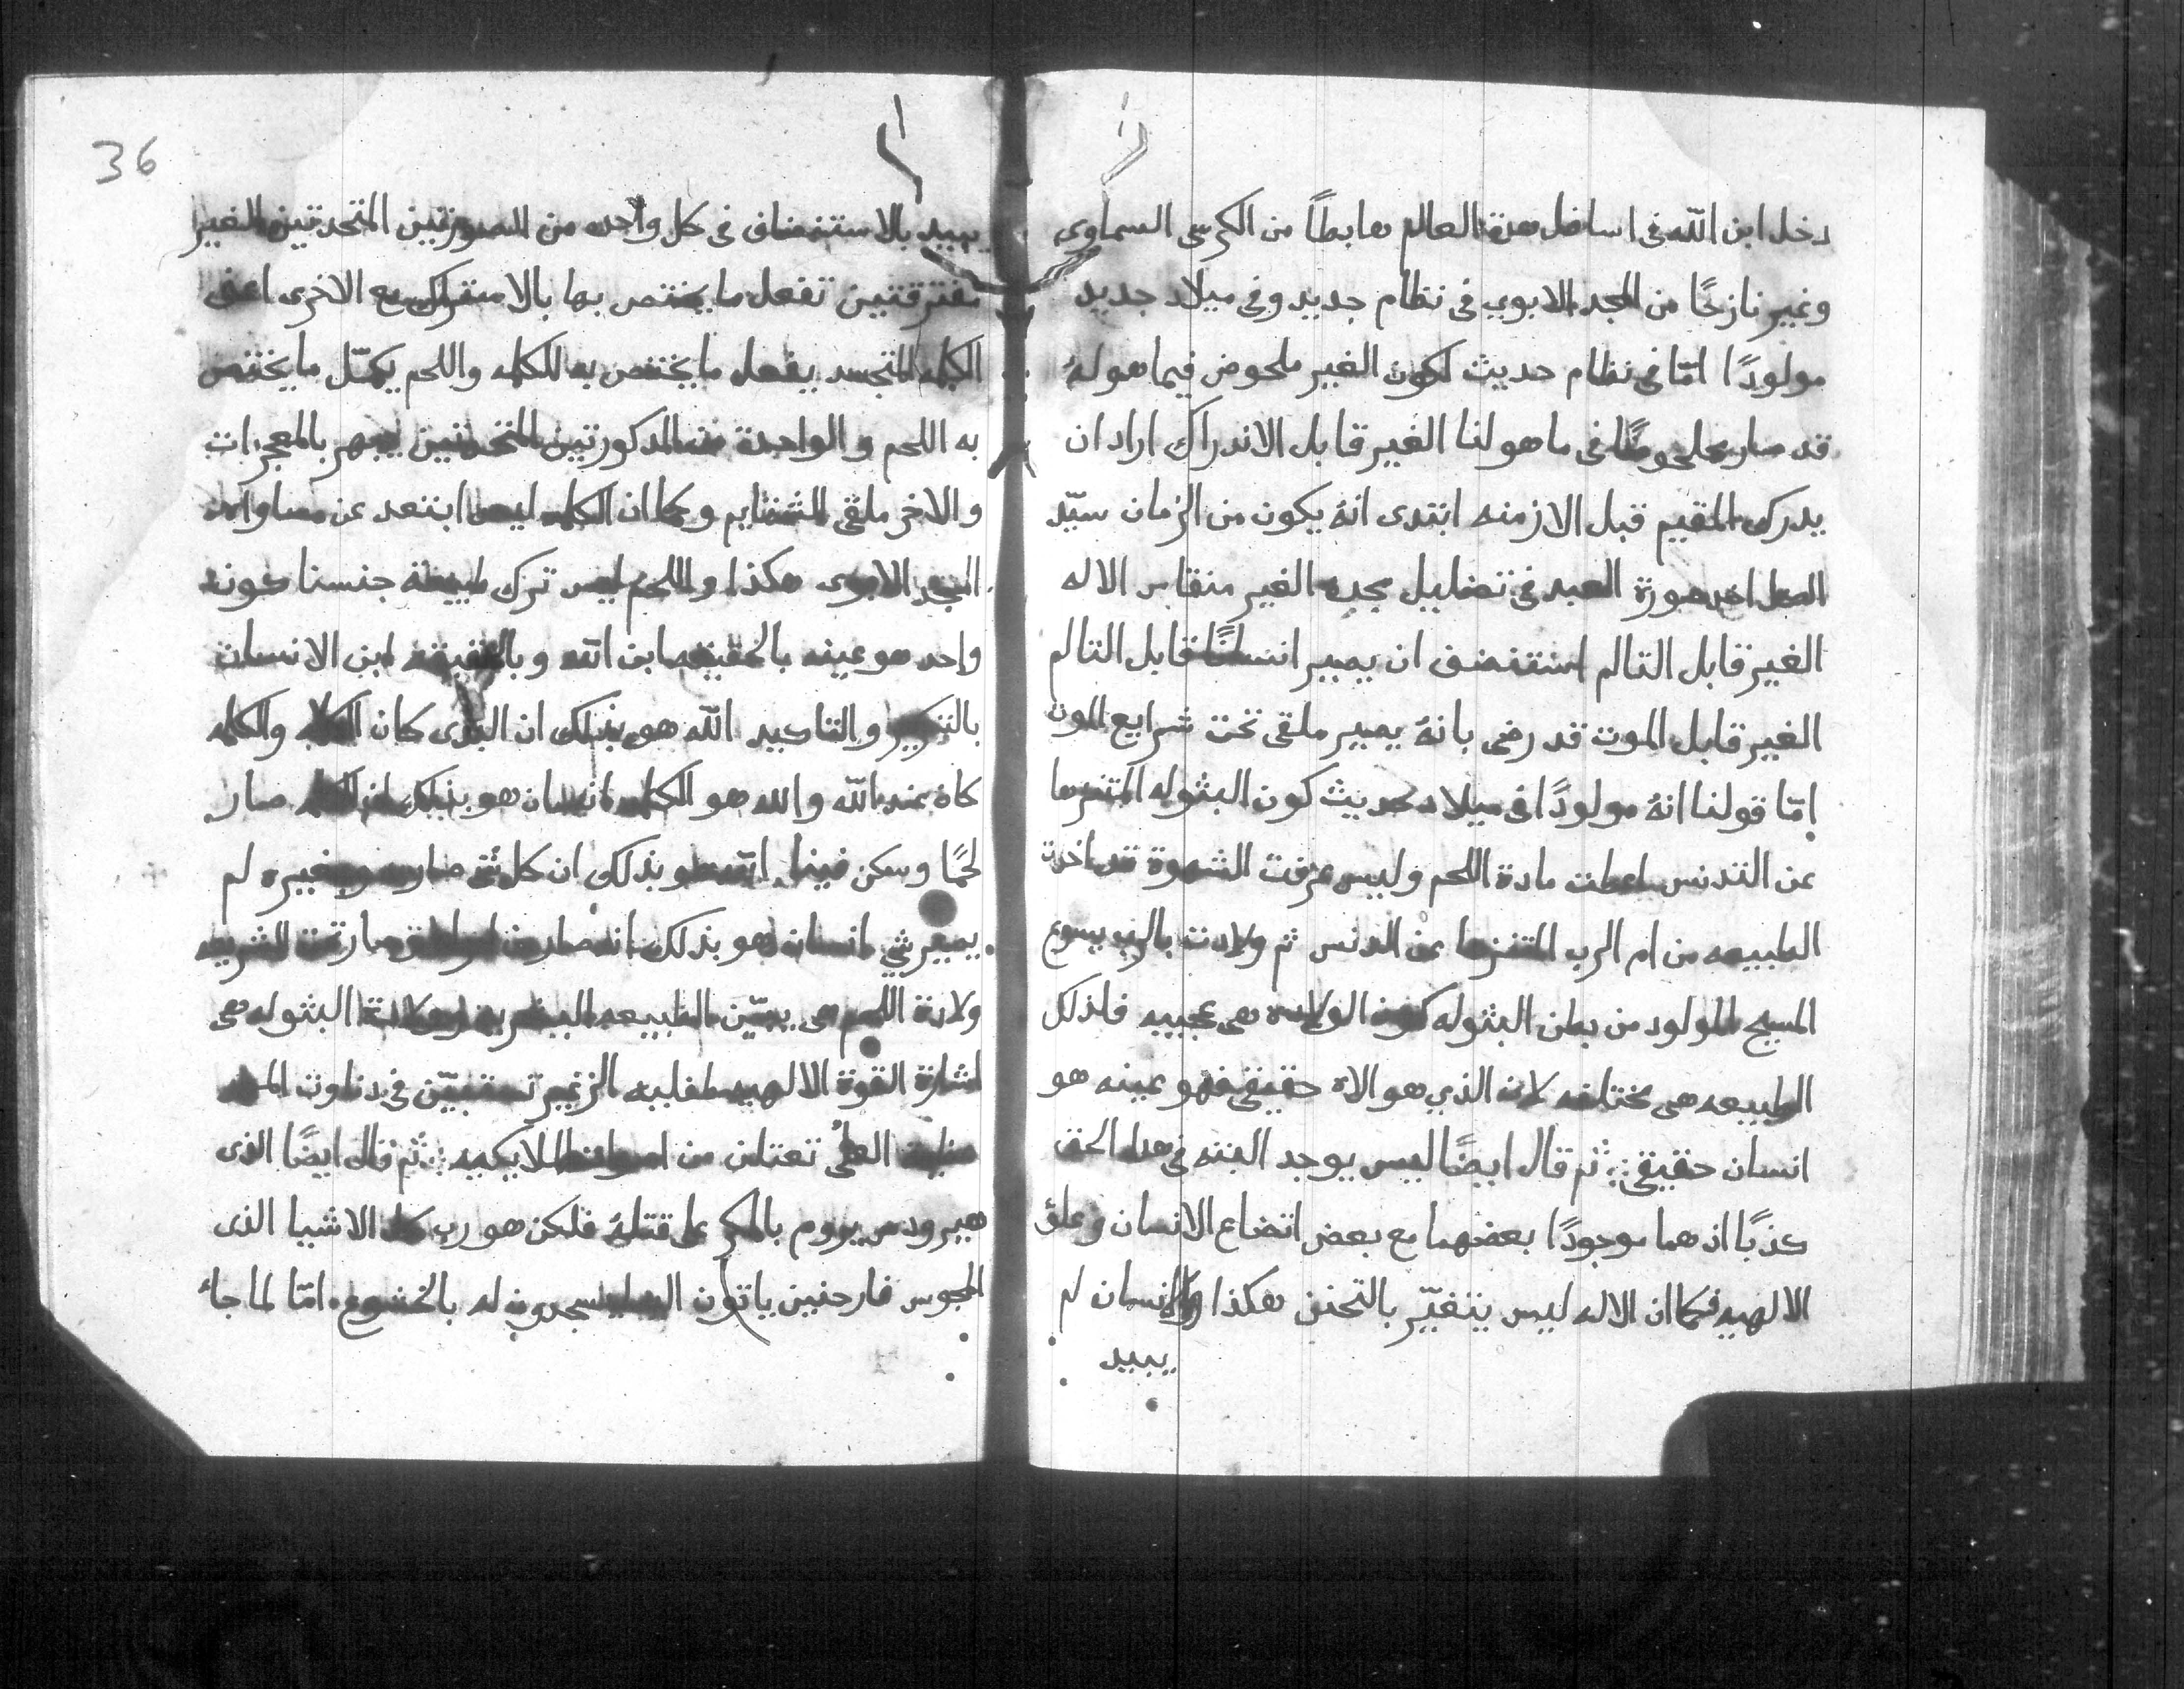 دخل ابن اللّه فى اسافل هذة العالم هابطاً من الكرسى السماوى
وغير نازحًا من المجد الابوي فى نظام جديد وفى ميلاد جديد
مولودًا امّا فى نظام حديث لكون الغير ملحوض فيما هو لهُ
قد صار ملحوضًا فى ما هو لنا الغير قابل الاندراك اراد ان
يدرك المقيم قبل الازمنه ابتدى انهُ يكون من الزمان سيّد
الكل اخد صورة العبد فى تضليل مجده الغير منقاس الاله
الغير قابل التالم استنضف ان يصير انسانًا قابل التالم
الغير قابل الموت قد رضى بانهُ يصير ملقى تحت شرايع الموت
امّا قولنا انهُ مولودًا فى ميلاد حديث كون البثوله المتنزها
عن التدنس اعطت مادة اللحم وليس عرفت الشهوة قد اخدت
الطبيعه من ام الرب المتنزها عن الدنس ثم ولادت بالرب يسوع
المسيح المولود من بطن البثوله كون الولاده هى عجيبه فلذلك
الطبيعه هى مختلفه لان الذي هو الاه حقيقى فهو عينه هو
انسان حقيقى ثم قال ايضًا ليس يوجد البته فى هدا الحق
كذبًا اذ هما موجودًا بعضهما مع بعض اتضاع الانسان وعلوّ
الالهيه فكما ان الاله ليس يتغيّر بالتحنن هكذا والانسان لم
يبيد
36
يبيد بالاستنضاف فى كل واحده من الصورتين المتحدتين الغير
مفترقتين تفعل ما يختص بها بالاشتراك مع الاخرى اعنى
الكلمه المتجسد يفعل ما يختص به للكلمه واللحم يكمّل ما يختص
به اللحم والواحدة من المدكورتين المتحدتين يبهر بالمعجزات
والاخر ملقى للشتايم وكما ان الكلمه ليس ابتعد عن مساواة
المجد الابوى هكذا واللحم ليس ترك طبيعة جنسنا كونه
واحد هو عينه بالحقيقه ابن اللّه وبالحقيقه ابن الانسان
بالتكرير والتاكيد اللّه هو بذلك ان البدى كان الكلمه والكلمه
كان عند اللّه والله هو الكلمه انسان هو بذلك ان الكلمه صار
لحمًا وسكن فينا اللّه هو بذلك ان كل شى صار به وبغيره لم
يصير شي انسان هو بذلك انه صار من امراة صار تحت الشريعه
ولادة اللحم هى يبيّن الطبيعه البشريه ولادة البثوله هى
اشارة القوة الالهيه طفليه الزغير تستبيّن فى دناوت المهد
العلىُّ تعتلن من اصوات الملايكيه ثم قال ايضًا الذى
هيرودس يروم بالمكر على قتلهُ فلكن هو رب كل الاشيا الذى
المجوس فارحنين ياتون اليه يسجدون له بالخشوع امّا لما جاء